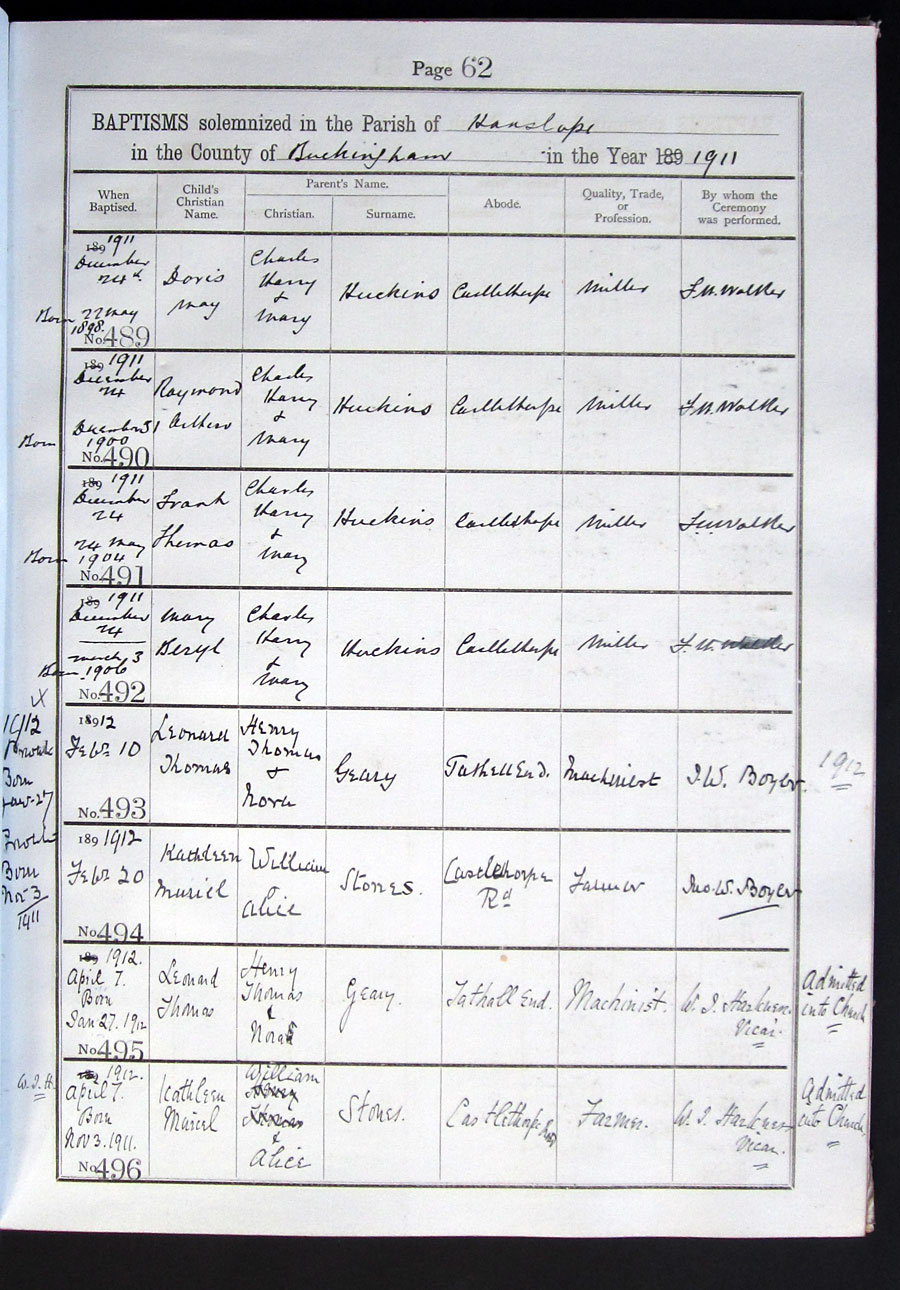 Page 62
BAPTISMS solemnized in the Parish of Hanslope
in the County of Buckingham in the Year 189 1911
When Baptised.
Child's Christian Name.
Parent's Name.
Christian.
Surname.
Abode.
Quality, Trade, or Profession.
By whom the Ceremony was performed.
189 1911
December 24th
Born 22 May 1898.
No. 489
Doris May
Charles Harry & Mary
Huckins
Castlethorpe
Miller
F.W. Walker
189 1911
December 24
Born December 31 1900
No. 490
Raymond Arthur
Charles Harry & Mary
Huckins
Castlethorpe
Miller
F.W. Walker
189 1911
December 24
Born 24 May 1904
No. 491
Frank Thomas
Charles Harry & Mary
Huckins
Castlethorpe
Miller
F.W. Walker
189 1911
December 24
Born March 3 1906
No. 492
Mary Beryl
Charles Harry & Mary
Huckins
Castlethorpe
Miller
F.W. Walker
X
1912
Born Jan 27
18912
Feb. 10
No. 493
Leonard Thomas
Henry Thomas & Nora
Geary
Tathall End.
Machinist
J.W. Boyer.
1912
Born Nov 3 1911
189 1912
Feb. 20
No. 494
Kathleen Muriel
William Alice
Stones.
Castlethorpe Rd
Farmer
Jno. W. Boyer
189 1912.
April 7.
Born Jan 27. 1912
No. 495
Leonard Thomas
Henry Thomas & Nora
Geary.
Tathall End.
Machinist.
W. J. Harkness. Vicar.
Admitted into Church
W.J.H.
189 1912.
April 7.
Born Nov 3. 1911.
No. 496
Kathleen Muriel
William Henry Thomas & Alice
Stones.
Castlethorpe Road
Farmer.
W. J. Harkness Vicar.
Admitted into Church